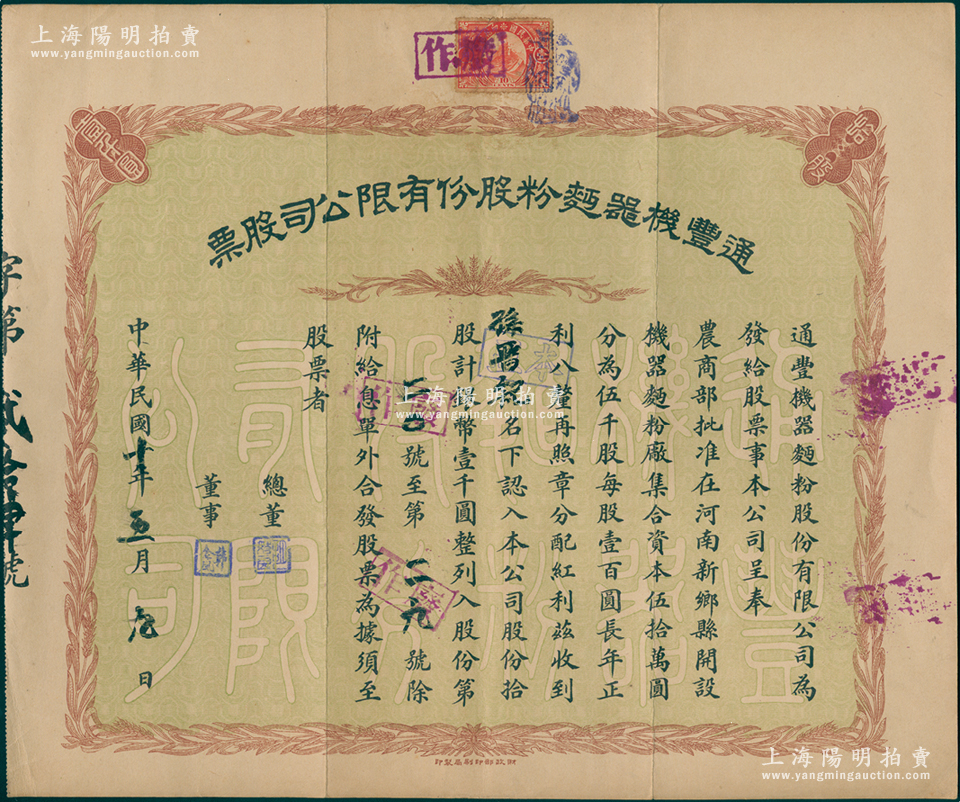 上海陽明拍賣
www.yangmingauction.com
作廢
通豐機器麵粉股份有限公司股票
通豐機器麵粉股份有限公司為
發給股票事本公司呈奉
農商部批准在河南新鄉縣開設
機器麵粉廠集合資本伍拾萬圓
分為伍千股每股壹百圓長年正
利八釐再照章分配紅利茲收到
名下認入本公司股份拾
股計洋幣壹千圓整列入股份第
號至第 號除
附給息單外合發股票為據須至
股票者
總董
董事
中華民國十年五月九日
字第貳拾肆號
作廢
作廢
上海陽明拍賣
www.yangmingauction.com
財政部印刷局製印
上海陽明拍賣
www.yangmingauction.com